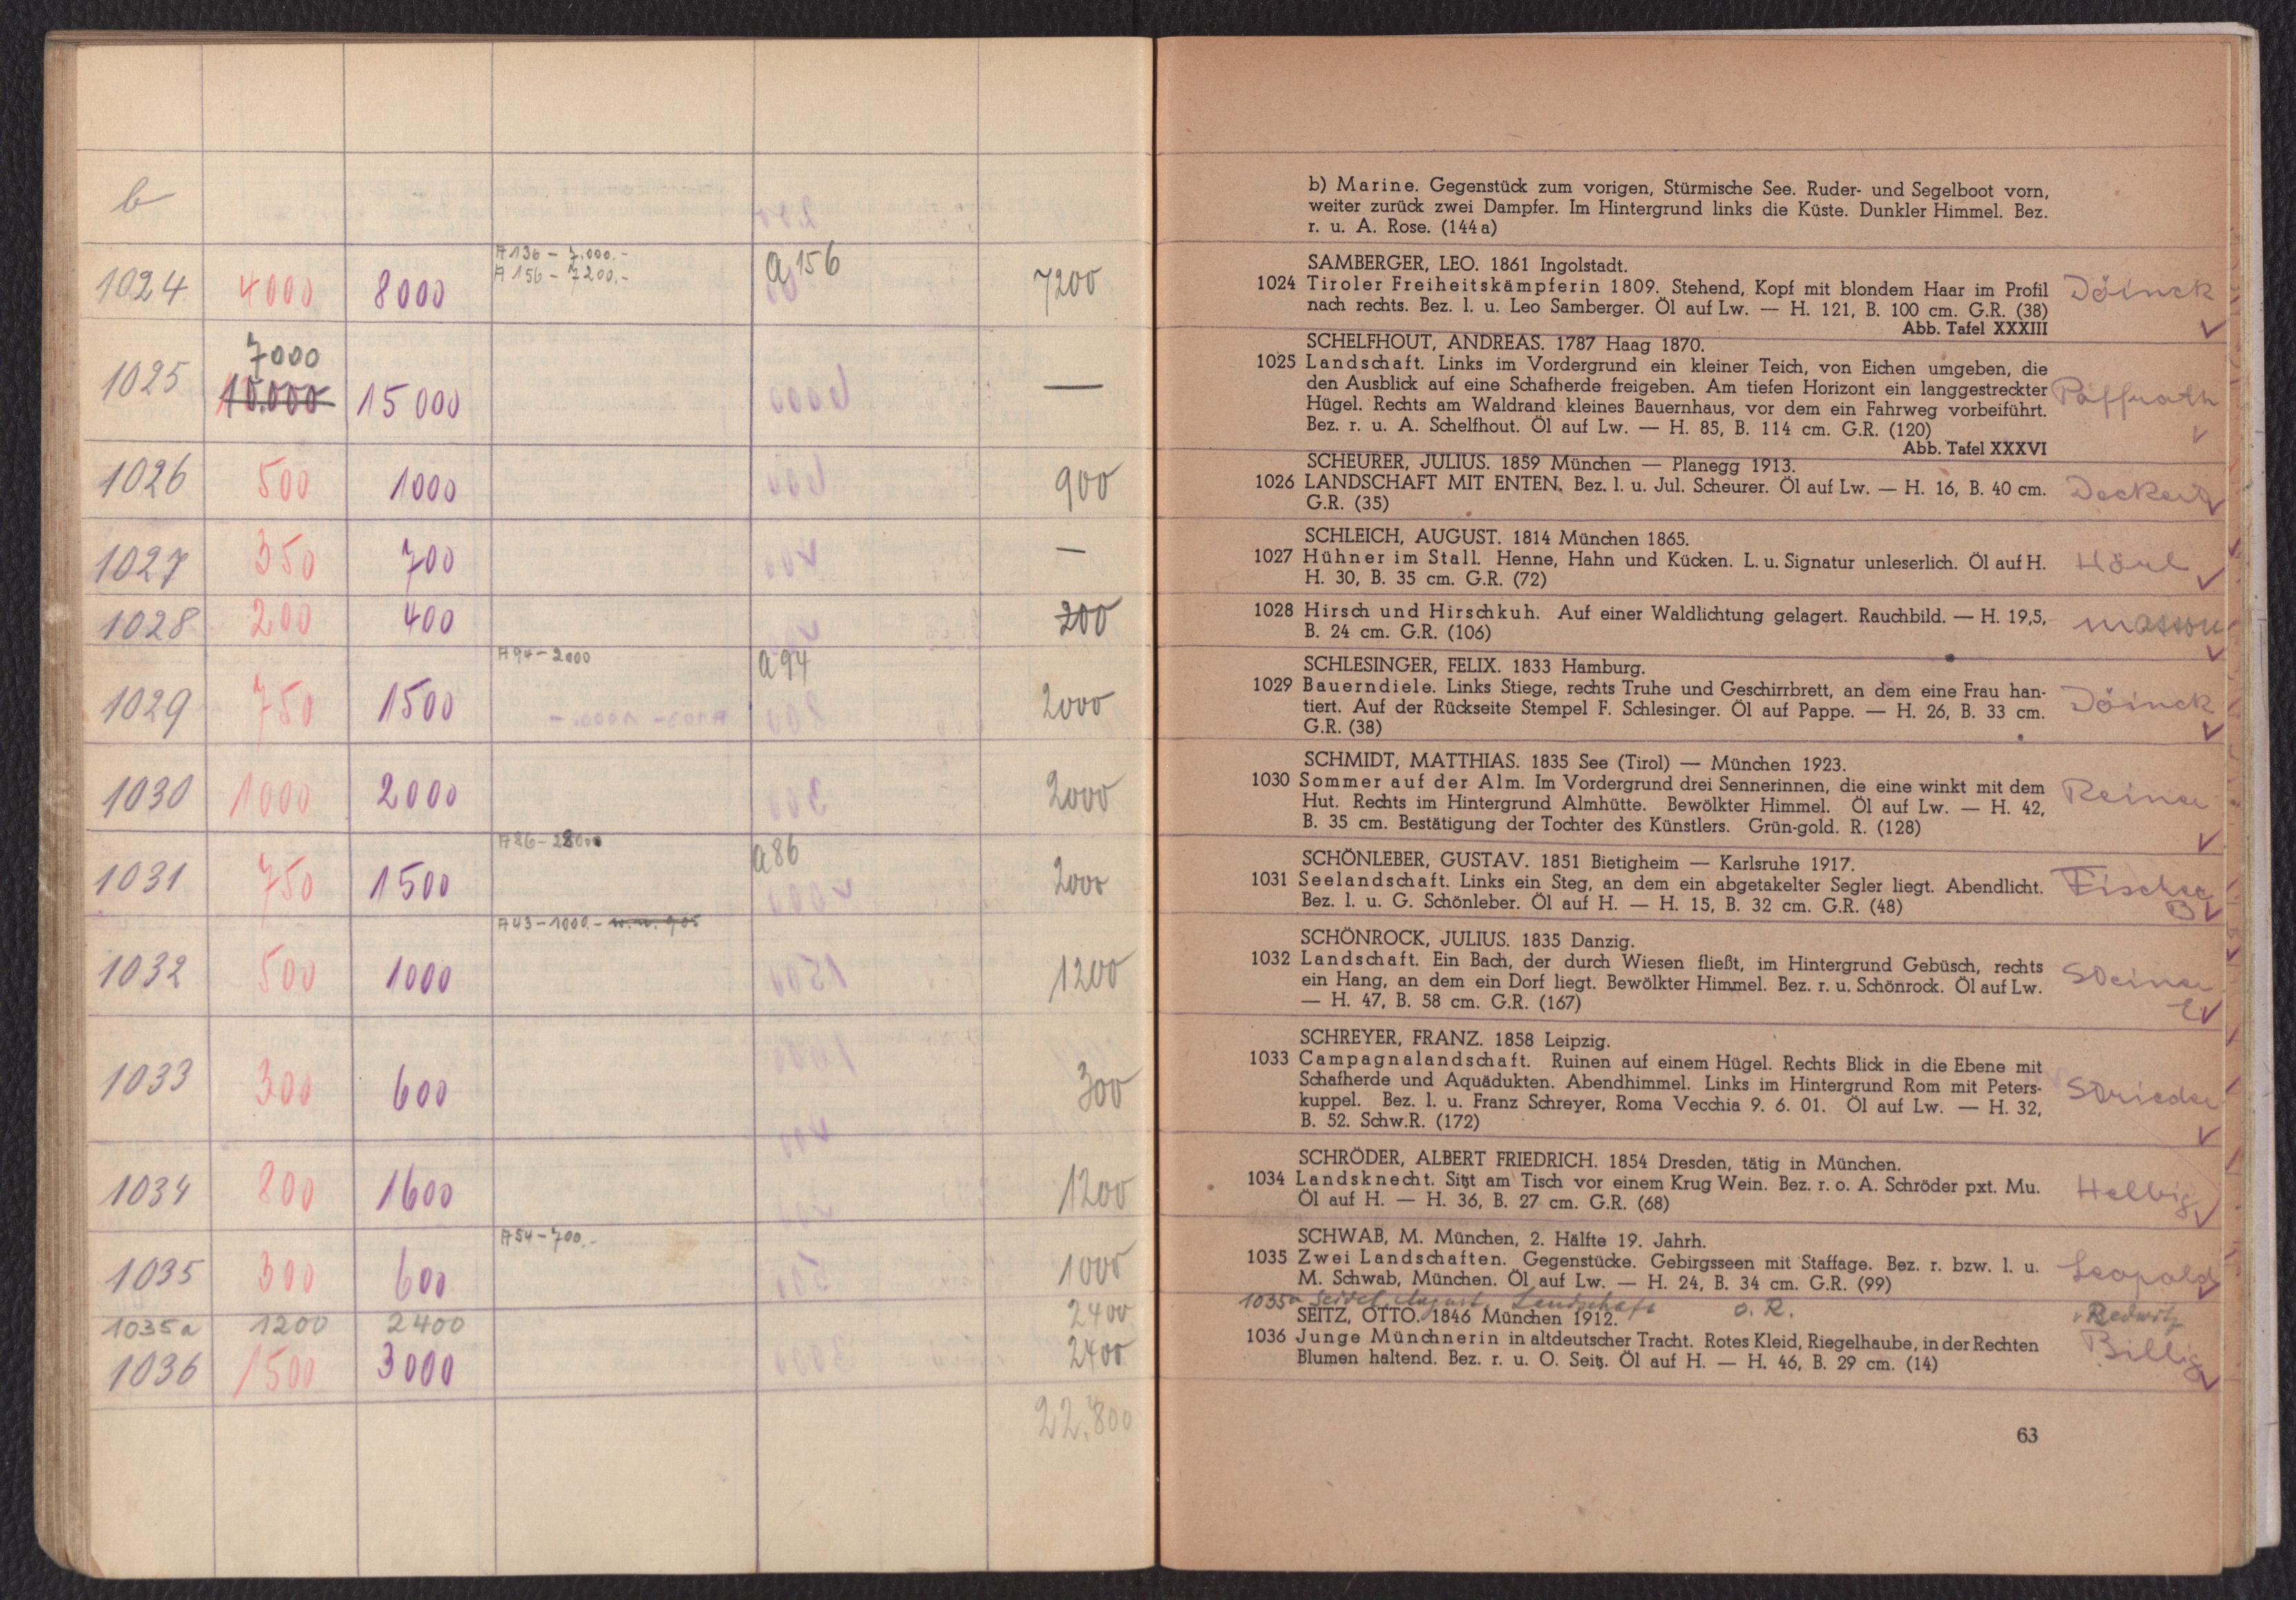 b
A136 – 7.000.–
1024 4000 8000 A156 – 7200.– a 156 7200
7000
1025 10.000 15000 —
1026 500 1000 900
1027 350 700 —
1028 200 400 200
A94 – 2000 a94
1029 750 1500 2000
1030 1000 2000 2000
A86 – a86
1031 750 1500 2000
A43 – 1000.–
1032 500 1000 1200
1033 300 600 300
1034 800 1600 1200
A54 – 700.–
1035 300 600 1000
1035a 1200 2400 2400
1036 1500 3000 2400
22.800
b) Marine. Gegenstück zum vorigen, Stürmische See. Ruder- und Segelboot vorn,
weiter zurück zwei Dampfer. Im Hintergrund links die Küste. Dunkler Himmel. Bez.
r. u. A. Rose. (144a)
SAMBERGER, LEO. 1861 Ingolstadt.
1024 Tiroler Freiheitskämpferin 1809. Stehend, Kopf mit blondem Haar im Profil Döinck
nach rechts. Bez. l. u. Leo Samberger. Öl auf Lw. — H. 121, B. 100 cm. G.R. (38)
Abb. Tafel XXXIII
SCHELFHOUT, ANDREAS. 1787 Haag 1870.
1025 Landschaft. Links im Vordergrund ein kleiner Teich, von Eichen umgeben, die
den Ausblick auf eine Schafherde freigeben. Am tiefen Horizont ein langgestreckter Paffrath
Hügel. Rechts am Waldrand kleines Bauernhaus, vor dem ein Fahrweg vorbeiführt.
Bez. r. u. A. Schelfhout. Öl auf Lw. — H. 85, B. 114 cm. G.R. (120)
Abb. Tafel XXXVI
SCHEURER, JULIUS. 1859 München — Planegg 1913.
1026 LANDSCHAFT MIT ENTEN. Bez. l. u. Jul. Scheurer. Öl auf Lw. — H. 16, B. 40 cm.
G.R. (35)
SCHLEICH, AUGUST. 1814 München 1865.
1027 Hühner im Stall. Henne, Hahn und Kücken. L. u. Signatur unleserlich. Öl auf H. Hörl
H. 30, B. 35 cm. G.R. (72)
1028 Hirsch und Hirschkuh. Auf einer Waldlichtung gelagert. Rauchbild. — H. 19,5, Masson
B. 24 cm. G.R. (106)
SCHLESINGER, FELIX. 1833 Hamburg.
1029 Bauerndiele. Links Stiege, rechts Truhe und Geschirrbrett, an dem eine Frau han- Döinck
tiert. Auf der Rückseite Stempel F. Schlesinger. Öl auf Pappe. — H. 26, B. 33 cm.
G.R. (38)
SCHMIDT, MATTHIAS. 1835 See (Tirol) — München 1923.
1030 Sommer auf der Alm. Im Vordergrund drei Sennerinnen, die eine winkt mit dem
Hut. Rechts im Hintergrund Almhütte. Bewölkter Himmel. Öl auf Lw. — H. 42,
B. 35 cm. Bestätigung der Tochter des Künstlers. Grün-gold. R. (128)
SCHÖNLEBER, GUSTAV. 1851 Bietigheim — Karlsruhe 1917.
1031 Seelandschaft. Links ein Steg, an dem ein abgetakelter Segler liegt. Abendlicht. Fischer
Bez. l. u. G. Schönleber. Öl auf H. — H. 15, B. 32 cm. G.R. (48) B
SCHÖNROCK, JULIUS. 1835 Danzig.
1032 Landschaft. Ein Bach, der durch Wiesen fließt, im Hintergrund Gebüsch, rechts
ein Hang, an dem ein Dorf liegt. Bewölkter Himmel. Bez. r. u. Schönrock. Öl auf Lw.
— H. 47, B. 58 cm. G.R. (167)
SCHREYER, FRANZ. 1858 Leipzig.
1033 Campagnalandschaft. Ruinen auf einem Hügel. Rechts Blick in die Ebene mit
Schafherde und Aquädukten. Abendhimmel. Links im Hintergrund Rom mit Peters-
kuppel. Bez. l. u. Franz Schreyer, Roma Vecchia 9. 6. 01. Öl auf Lw. — H. 32,
B. 52. Schw.R. (172)
SCHRÖDER, ALBERT FRIEDRICH. 1854 Dresden, tätig in München.
1034 Landsknecht. Sitzt am Tisch vor einem Krug Wein. Bez. r. o. A. Schröder pxt. Mu. Helbig
Öl auf H. — H. 36, B. 27 cm. G.R. (68)
SCHWAB, M. München, 2. Hälfte 19. Jahrh.
1035 Zwei Landschaften. Gegenstücke. Gebirgsseen mit Staffage. Bez. r. bzw. l. u. Leopold
M. Schwab, München. Öl auf Lw. — H. 24, B. 34 cm. G.R. (99)
1035a Seidel August, Landschaft o. R. v. Redwitz
SEITZ, OTTO. 1846 München 1912.
1036 Junge Münchnerin in altdeutscher Tracht. Rotes Kleid, Riegelhaube, in der Rechten Billig
Blumen haltend. Bez. r. u. O. Seitz. Öl auf H. — H. 46, B. 29 cm. (14)
63